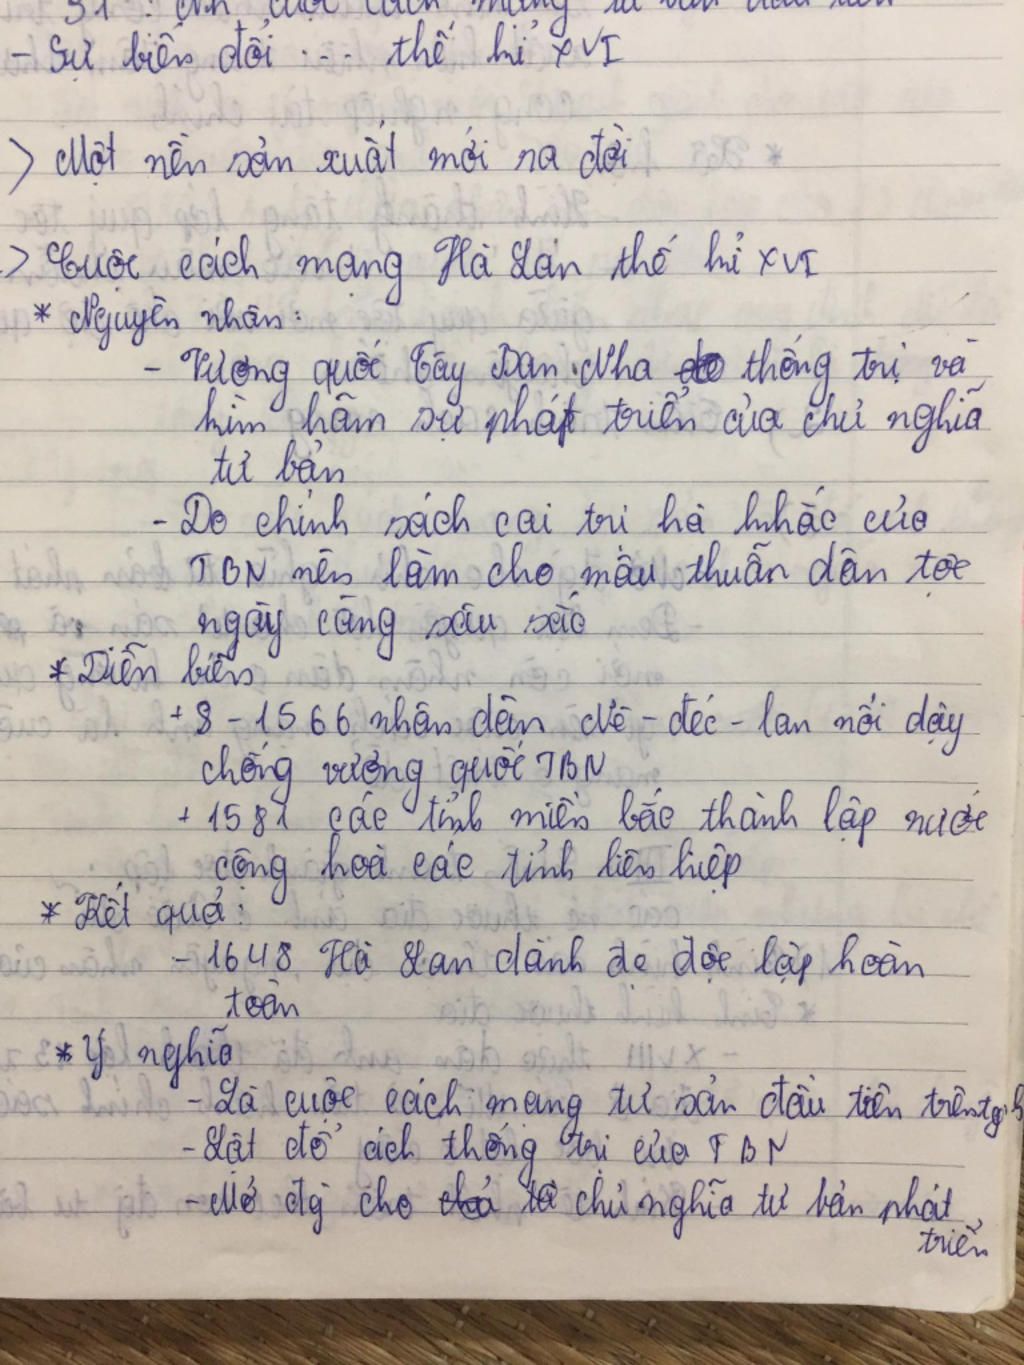 cuộc cách mạng tư sản đầu tiên
- Sự biến đổi ... thế kỉ XVI
> Một nền sản xuất mới ra đời
> Cuộc cách mạng Hà Lan thế kỉ XVI
* Nguyên nhân:
- Vương quốc Tây Ban Nha thống trị và
kìm hãm sự phát triển của chủ nghĩa
tư bản
- Do chính sách cai trị hà khắc của
TBN nên làm cho mâu thuẫn dân tộc
ngày càng sâu sắc
* Diễn biến
+ 8 - 1566 nhân dân Nê - đéc - lan nổi dậy
chống vương quốc TBN
+ 1581 các tỉnh miền bắc thành lập nước
cộng hoà các tỉnh liên hiệp
* Kết quả:
- 1648 Hà Lan dành đc độc lập hoàn
toàn
* Ý nghĩa
- Là cuộc cách mạng tư sản đầu tiên trên tg
- Lật đổ ách thống trị của TBN
- Mở đg cho chủ nghĩa tư bản phát
triển